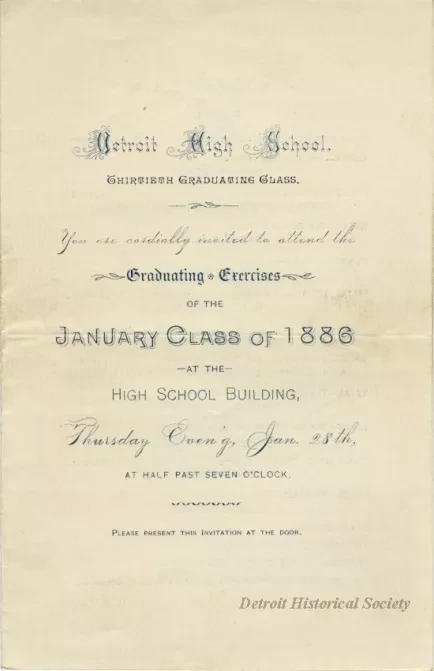 Detroit High School.
THIRTIETH GRADUATING CLASS.
You are cordially invited to attend the
Graduating Exercises
OF THE
JANUARY CLASS OF 1886
—AT THE—
HIGH SCHOOL BUILDING,
Thursday Even'g, Jan. 28th,
AT HALF PAST SEVEN O'CLOCK.
PLEASE PRESENT THIS INVITATION AT THE DOOR.
Detroit Historical Society